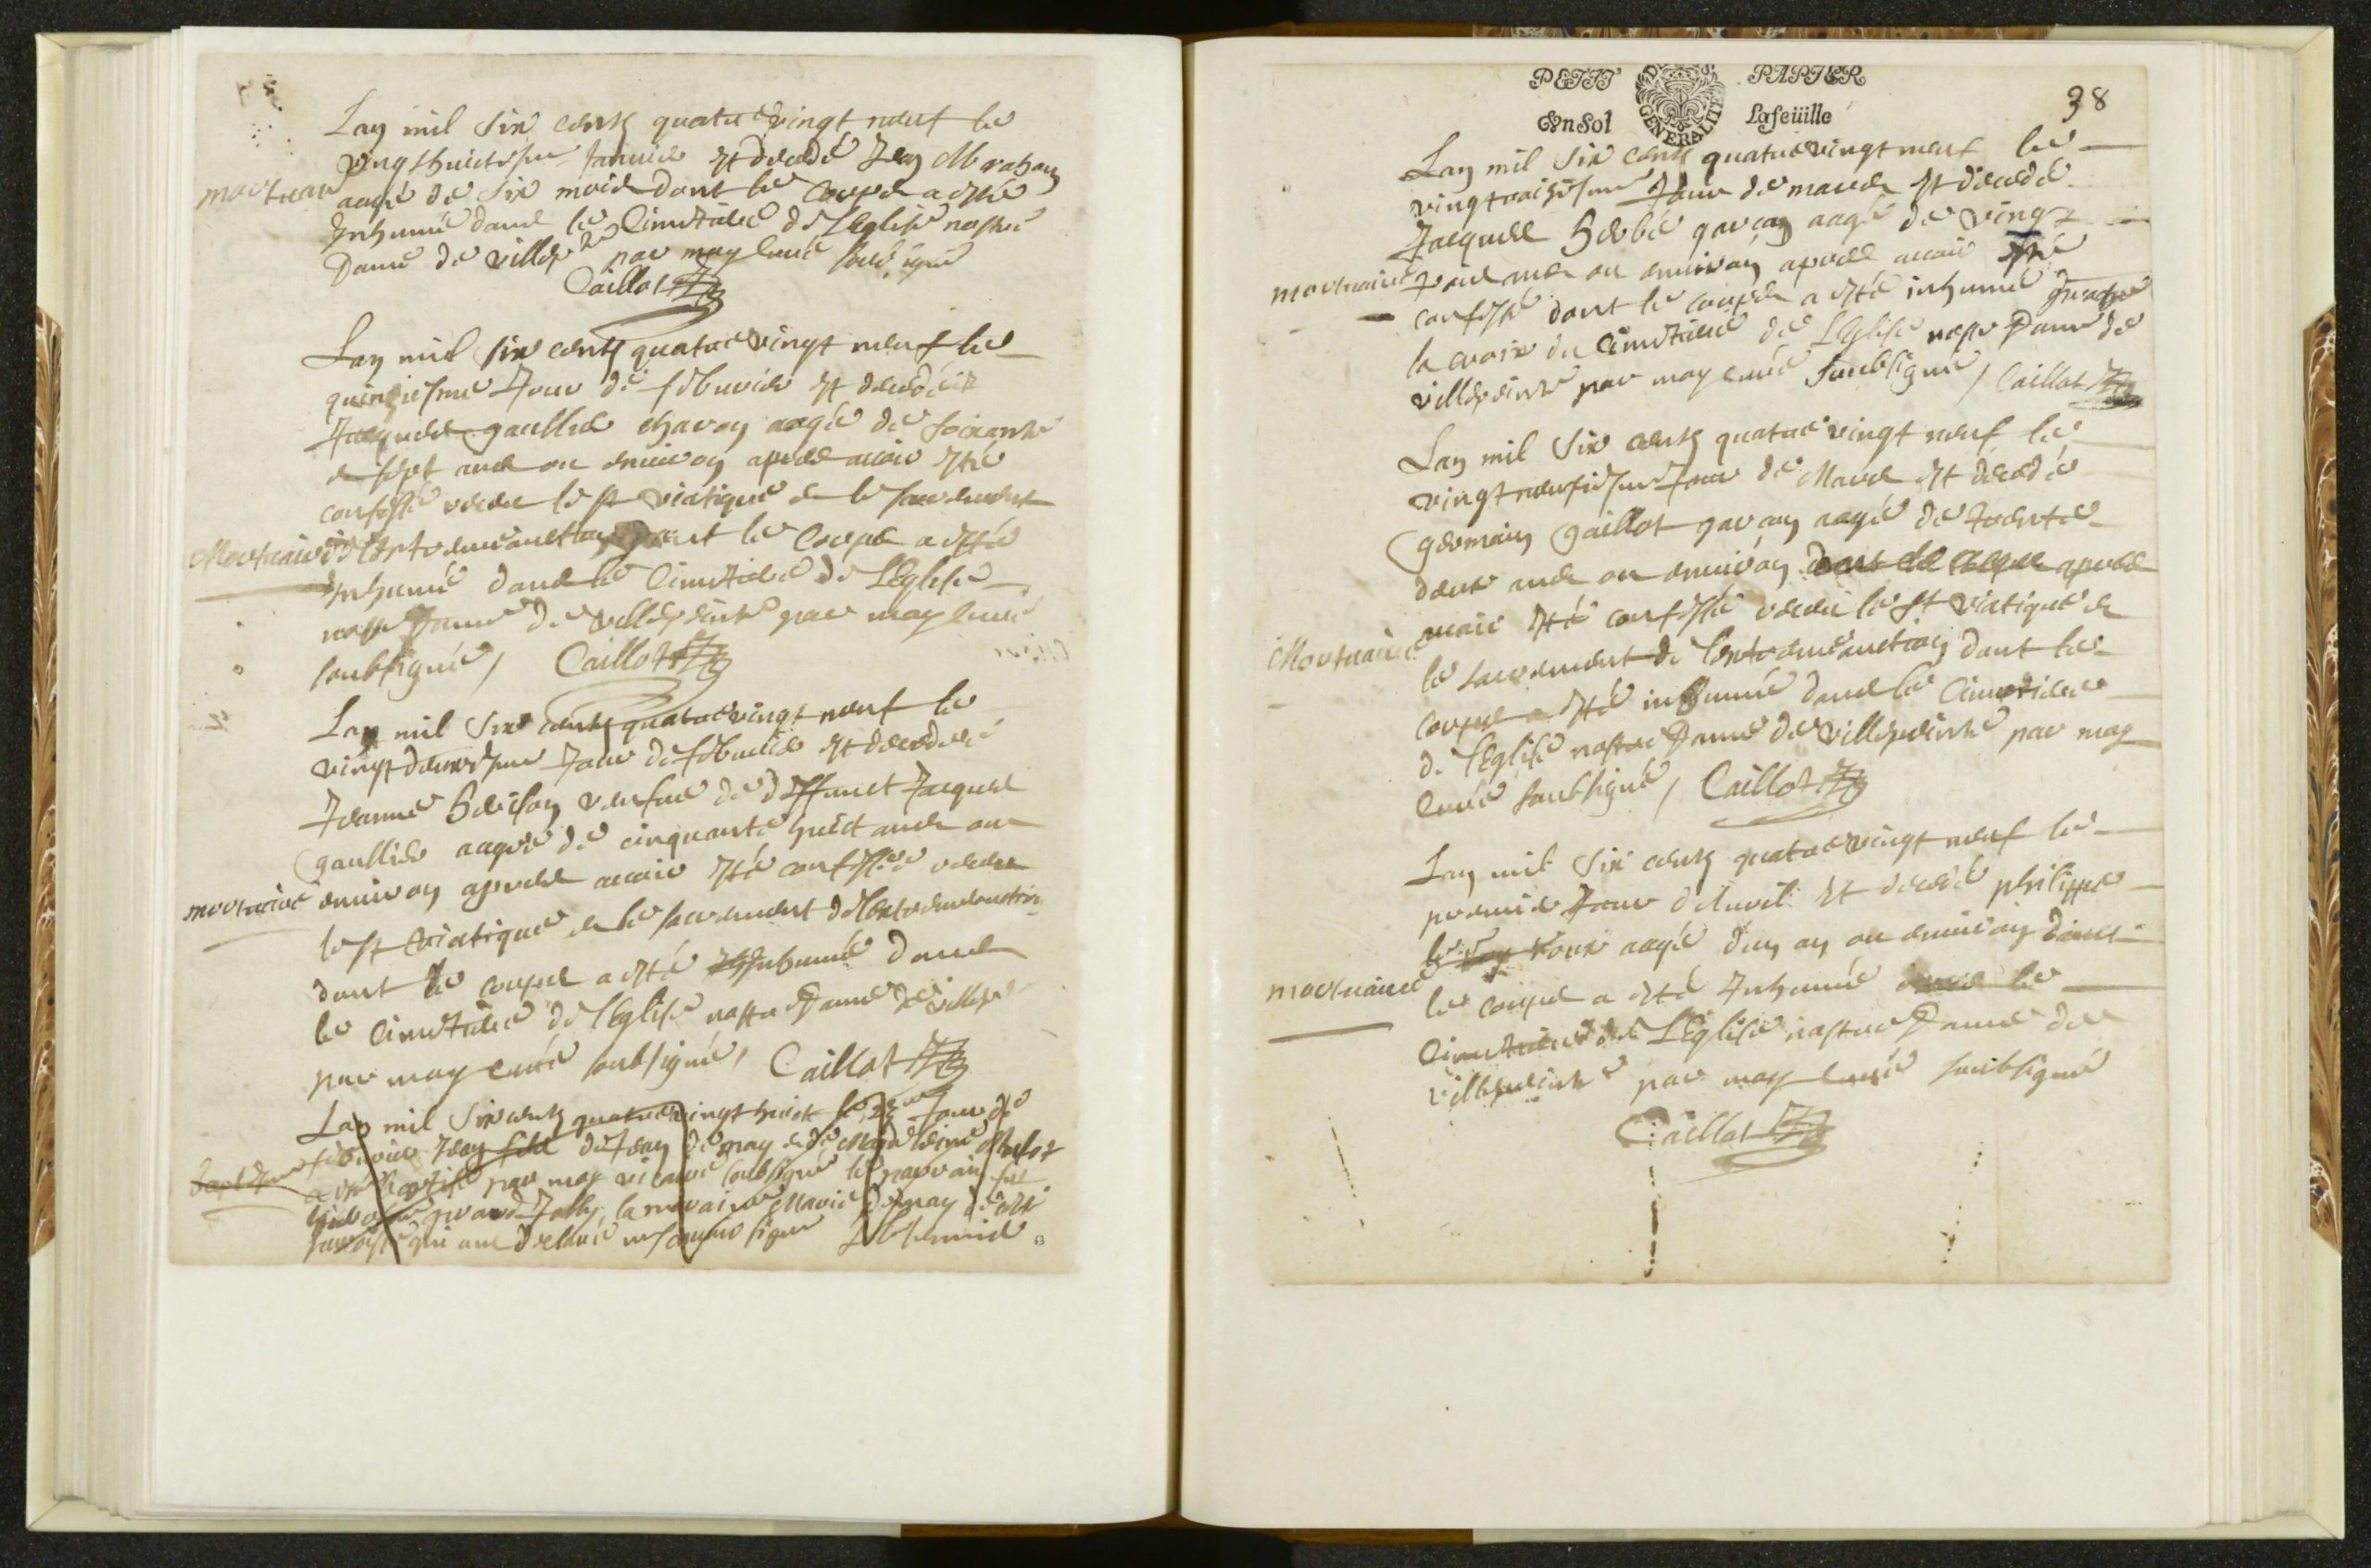 Lan mil six cents quatre vingt neuf le
vingthuictiesme Janvier est decedé Jean
mortuaire
aagé de six mois dont le corps a esté
Inhumé dans le Cimetiere de l'Eglise nostre
Dame de villep^te par moy curé soubsigné
Caillot
Lan mil six cents quatre vingt neuf le
quinziesme Jour de febvrier est decedé
Jacques gaultier charon aagé de soixante
et sept ans ou environ apres avoir esté
confessé receu le st viatique et le sacrement
Mortuaire
de l'extremeonction dont le Corps a esté
Inhumé dans le Cimetiere de L'Eglise
nostre Dame de villepeinte par moy curé
soubsigné / Caillot
Lan mil six cents quatre vingt neuf le
vingtdeuxiesme Jour de febvrier est decedeé
Jeanne veufve de deffunct Jacques
gaultier aageé de cinquante huict ans ou
mortuaire
environ apres avoir esté confesseé receu
le st viatique et le sacrement de l'extremeonction
dont le corps a esté Inhumé dans
le Cimetiere de l'Eglise nostre Dame de villep^te
par moy curé soubsigné / Caillot
Lan mil six cents quatre vingt huict le 22^me Jour de
febvrier Jean fils de Jean de may et de Magdeleine
a esté Baptisé par moy vicaire soubsigné le parrain fut
grand Jolly la maraine Marie
qui ont declaré ne scavoir signer
PETIT PAPIER
GENERALITE
En Sol La feüille
38
Lan mil six cents quatre vingt neuf le
vingttroisiesme Jour de mars est decedé
Jacques garçon aagé de vingt
mortuaire
trois ans ou environ apres avoir esté
confessé dont le corps a esté inhumé proche
la croix du Cimetiere de L'Eglise nostre Dame de
villepeinte par moy curé soubsigné / Caillot
Lan mil six cents quatre vingt neuf le
vingt neufiesme Jour de Mars est decedé
germain gaillot garçon aagé de trente
deux ans ou environ apres
avoir esté confessé receu le st viatique et
Mortuaire
le sacrement de l'extremeonction dont le
corps a esté inhumé dans le Cimetiere
de l'Eglise nostre Dame de villepeinte par moy
Curé soubsigné / Caillot
Lan mil six cents quatre vingt neuf le
premier Jour d'Avril est decedé philippe
le Roux aagé d'un an ou environ dont
mortuaire
le corps a esté Inhumé dans le
Cimetiere de L'Eglise nostre Dame de
villepeinte par moy curé soubsigné
Caillot